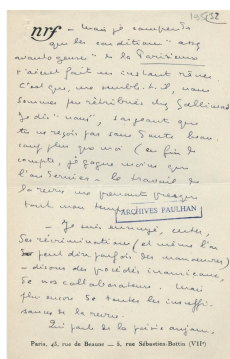 195(52
nrf
– Mais je comprends
que les conditions "assez
avantageuses" de la Parisienne
t'aient fait un instant rêver.
C'est que, me semble-t-il, nous
sommes peu rétribués des Gallimard
Je dis "nous", songeant que
tu ne reçois pas sans doute beau-
coup plus que moi (en fin de
compte, je gagne moins que
l'an dernier – le travail de
la revue me prenant presque
tout mon temps
ARCHIVES PAULHAN
– Je suis ennuyé, certes,
des récriminations (et même l'on
peut dire parfois des manœuvres)
– disons des procédés
de nos collaborateurs. Mais
plus encore de toutes les insuffi-
sances de la revue.
Qui parle de la poésie aujour.
Paris, 43, rue de Beaune — 5, rue Sébastien-Bottin (VIIe)